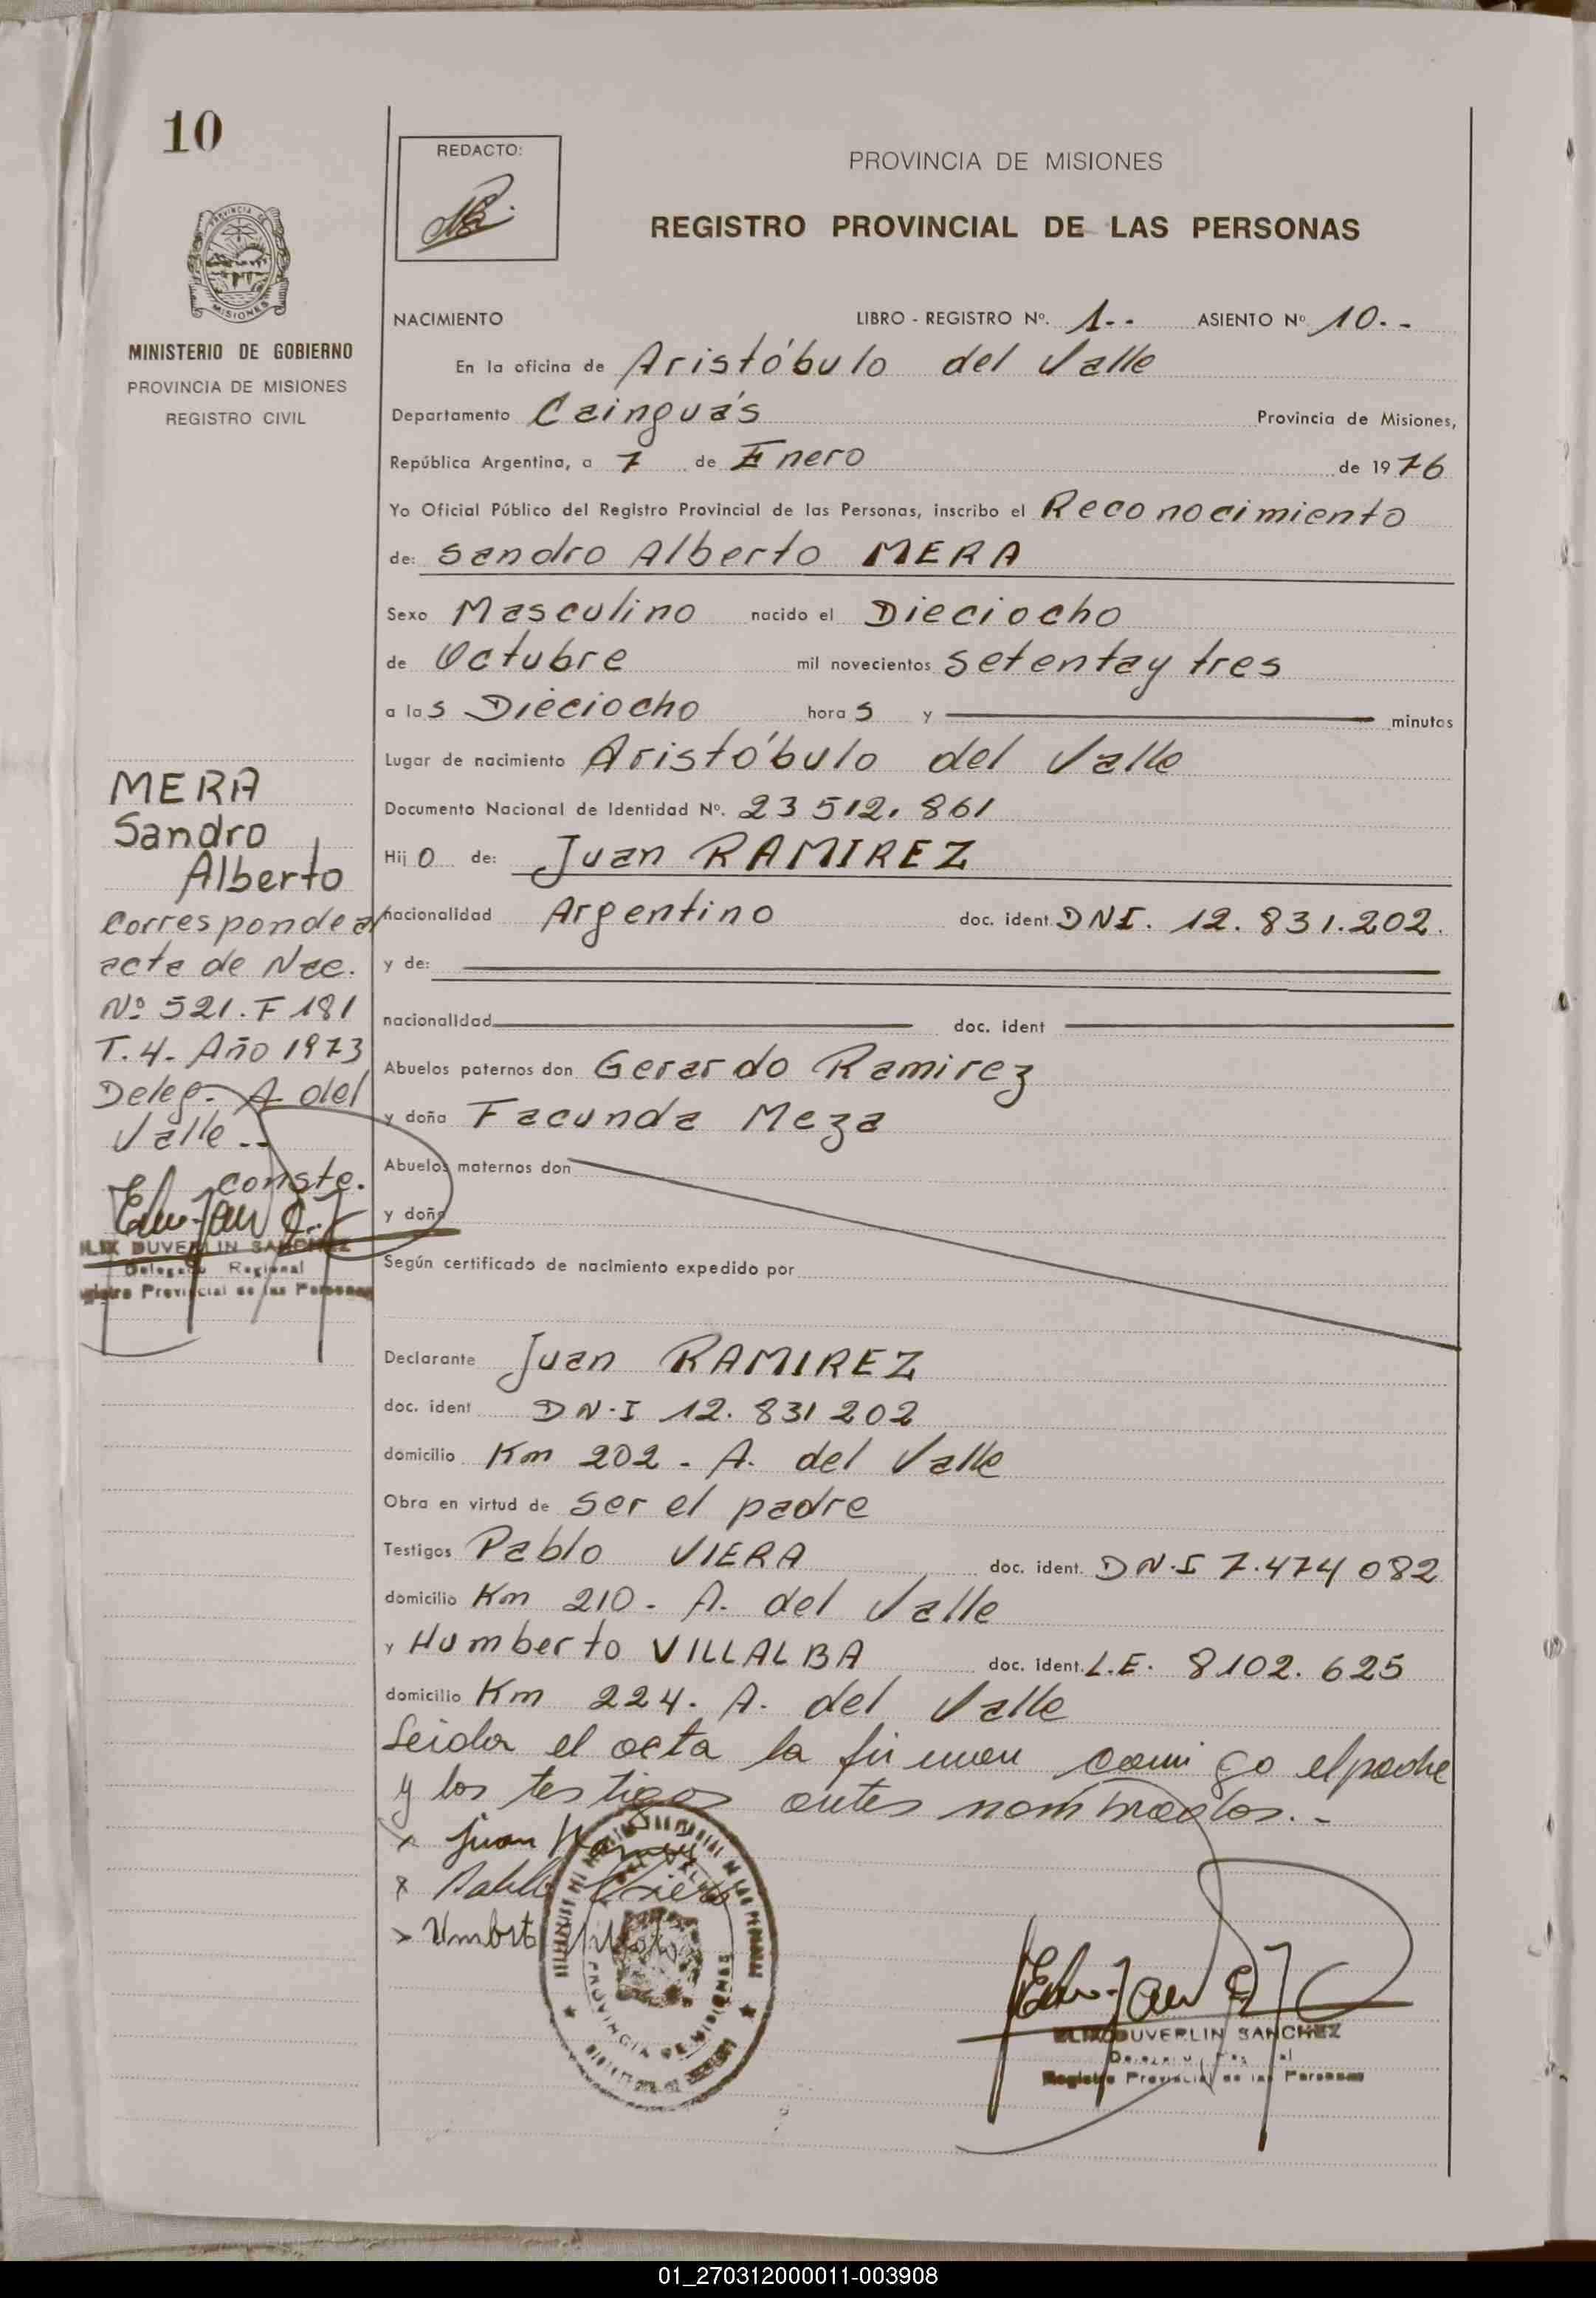 10
REDACTO:
PROVINCIA DE MISIONES
REGISTRO PROVINCIAL DE LAS PERSONAS
PROVINCIA DE
MISIONES
MINISTERIO DE GOBIERNO
PROVINCIA DE MISIONES
REGISTRO CIVIL
NACIMIENTO LIBRO - REGISTRO Nº. 1.- ASIENTO Nº 10.-
En la oficina de Aristóbulo del Valle
Departamento Cainguás Provincia de Misiones,
República Argentina, a 7 de Enero de 1976
Yo Oficial Público del Registro Provincial de las Personas, inscribo el Reconocimiento
de: Sandro Alberto MERA
Sexo Masculino nacido el Dieciocho
de Octubre mil novecientos setenta y tres
a las Dieciocho horas y minutos
Lugar de nacimiento Aristóbulo del Valle
Documento Nacional de Identidad Nº. 23 512. 861
Hijo de: Juan RAMIREZ
nacionalidad Argentino doc. ident. DNI. 12.831.202.
y de:
nacionalidad doc. ident
Abuelos paternos don Gerardo Ramirez
y doña Facunda Meza
Abuelos maternos don
y doña
Según certificado de nacimiento expedido por
Declarante Juan RAMIREZ
doc. ident D N.I 12. 831 202
domicilio Km 202 - A. del Valle
Obra en virtud de ser el padre
Testigos Pablo VIERA doc. ident. D N.I 7.474 082
domicilio Km 210 - A. del Valle
y Humberto VILLALBA doc. ident. L.E. 8102. 625
domicilio Km 224. A. del Valle
Leida el acta la firman comigo el padre
y los testigos antes nombrados.-
x Juan
x Pablo Viera
x Umbrto
MERA
Sandro
Alberto
Corresponde al
acta de Nac.
Nº 521. F 181
T. 4. Año 1973
Deleg. A del
Valle.-
conste.
DUVERLIN SANCHEZ
Delegado Regional
Registro Provincial de las Personas
PROVINCIA DE MISIONES
DUVERLIN SANCHEZ
Registro Provincial de las Personas
01_270312000011-003908